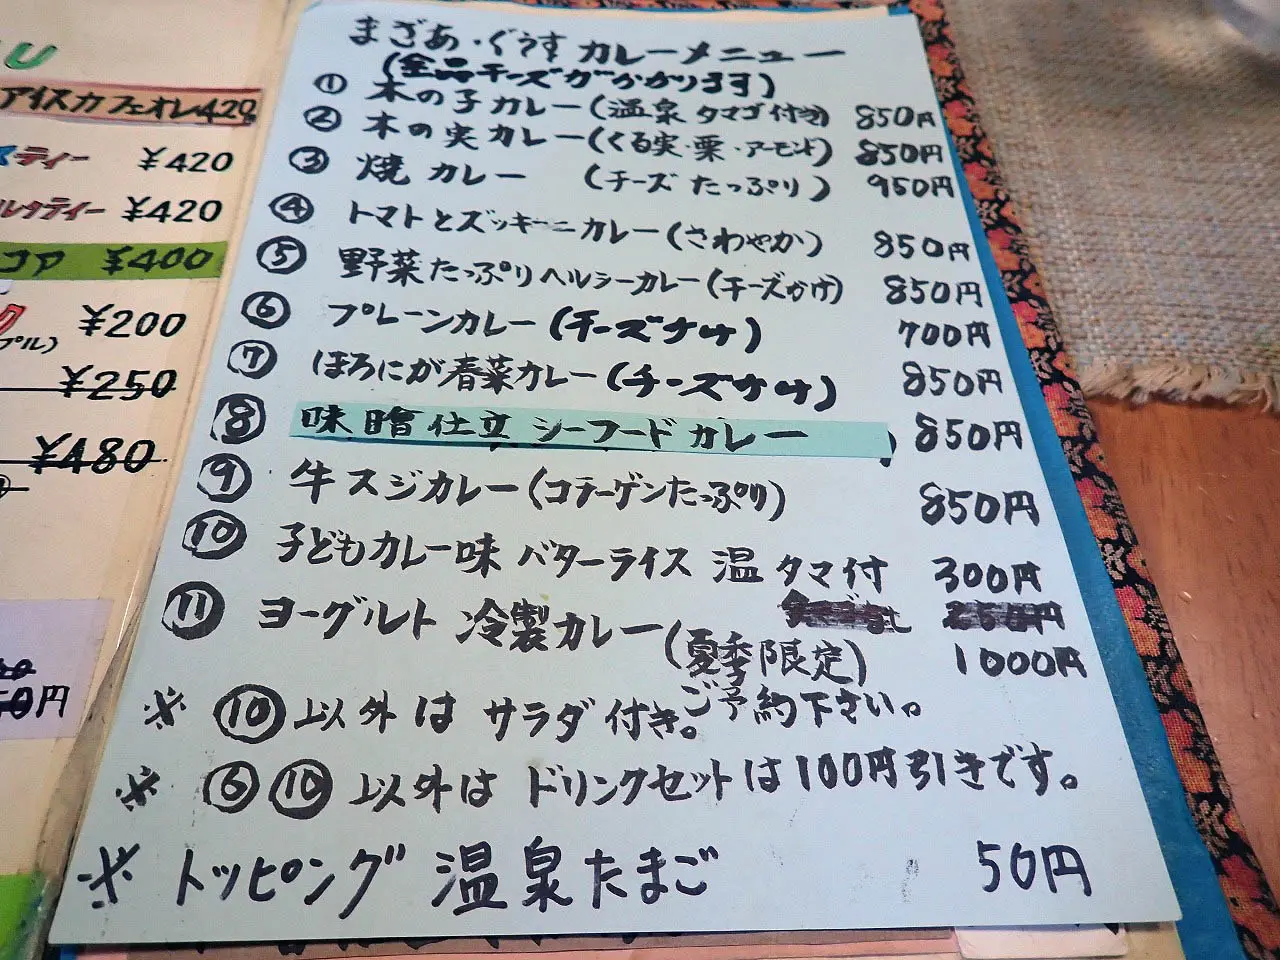 まざあ・ぐうす カレーメニュー
(全品チーズがかかります)
① 木の子カレー(温泉タマゴ付き) 850円
② 木の実カレー(くる実・栗・アーモンド) 850円
③ 焼カレー (チーズたっぷり) 950円
④ トマトとズッキーニカレー(さわやか) 850円
⑤ 野菜たっぷりヘルシーカレー(チーズかけ) 850円
⑥ プレーンカレー(チーズかけ) 700円
⑦ ほろにが春菜カレー(チーズかけ) 850円
⑧ 味噌仕立シーフードカレー) 850円
⑨ 牛スジカレー(コラーゲンたっぷり) 850円
⑩ 子どもカレー味 バターライス 温タマ付 300円
⑪ ヨーグルト冷製カレー(夏季限定) 1000円
ご予約下さい。
※ ⑩以外は サラダ付き。
※ ⑥⑩以外は ドリンクセットは100円引きです。
※ トッピング 温泉たまご 50円
アイスカフェオレ420
ティー ¥420
ルクティー ¥420
コア ¥400
¥200
プル)
¥250
¥480
円